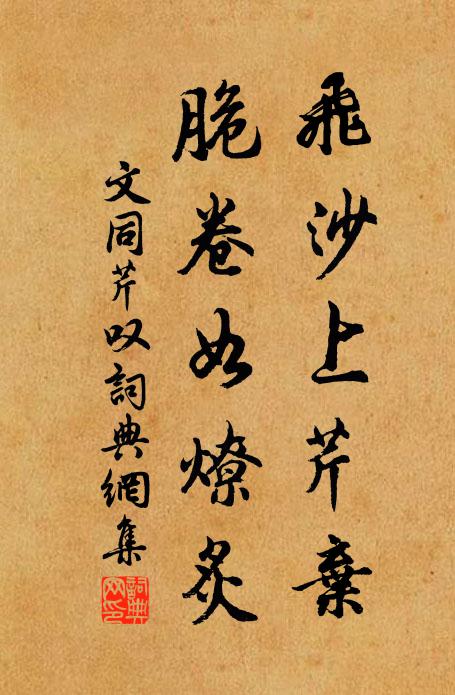 飛沙上芹棄
脆卷如燎炙
文同芹叹詞典網集
詞典网印